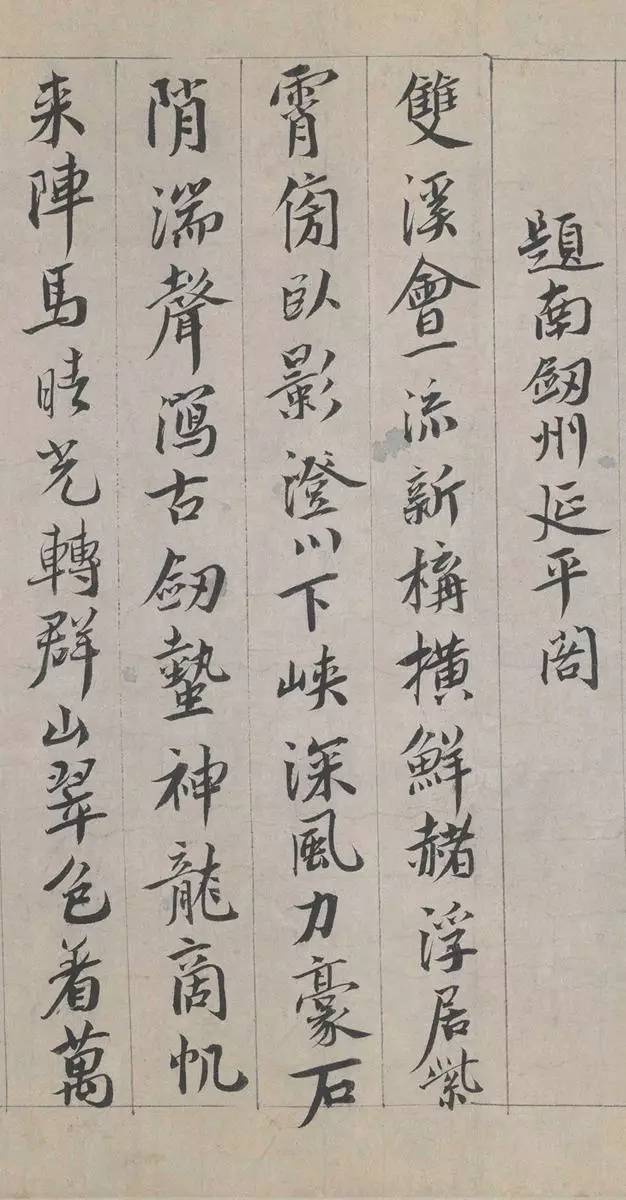 題南劔州延平閣
雙溪會一流新構橫鮮赭浮居紫
霄傍臥影澄川下峽深風力豪石
陗湍聲瀉古劔蟄神龍商帆
来陣馬晴光轉群山翠色着萬